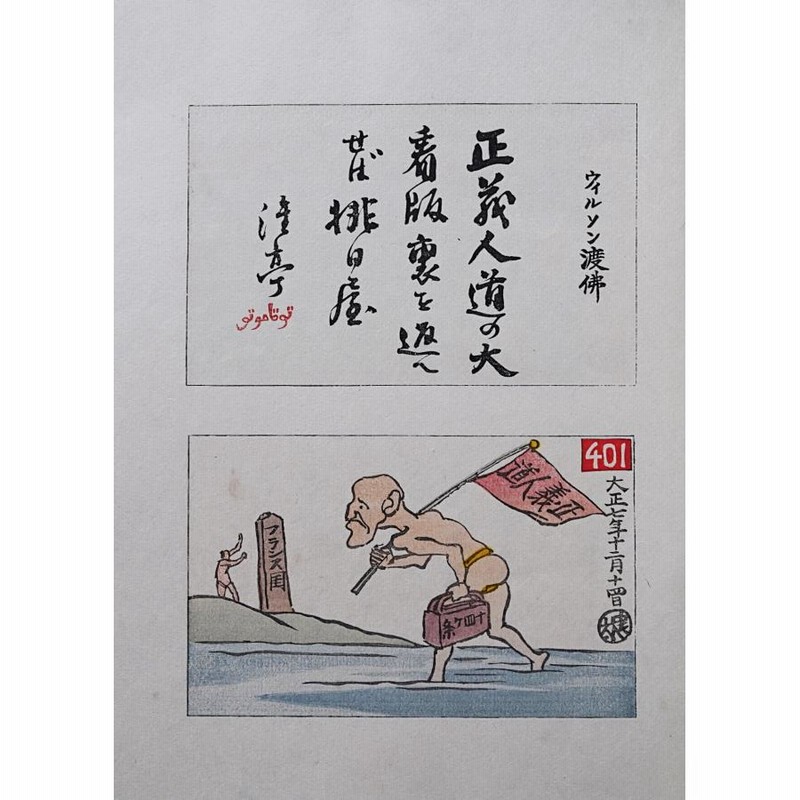 ウィルソン渡佛
正義人道の大
看版裏を返へ
せば排日屋
401
大正七年十二月十四日
正義人道
十四ヶ条
フランス国